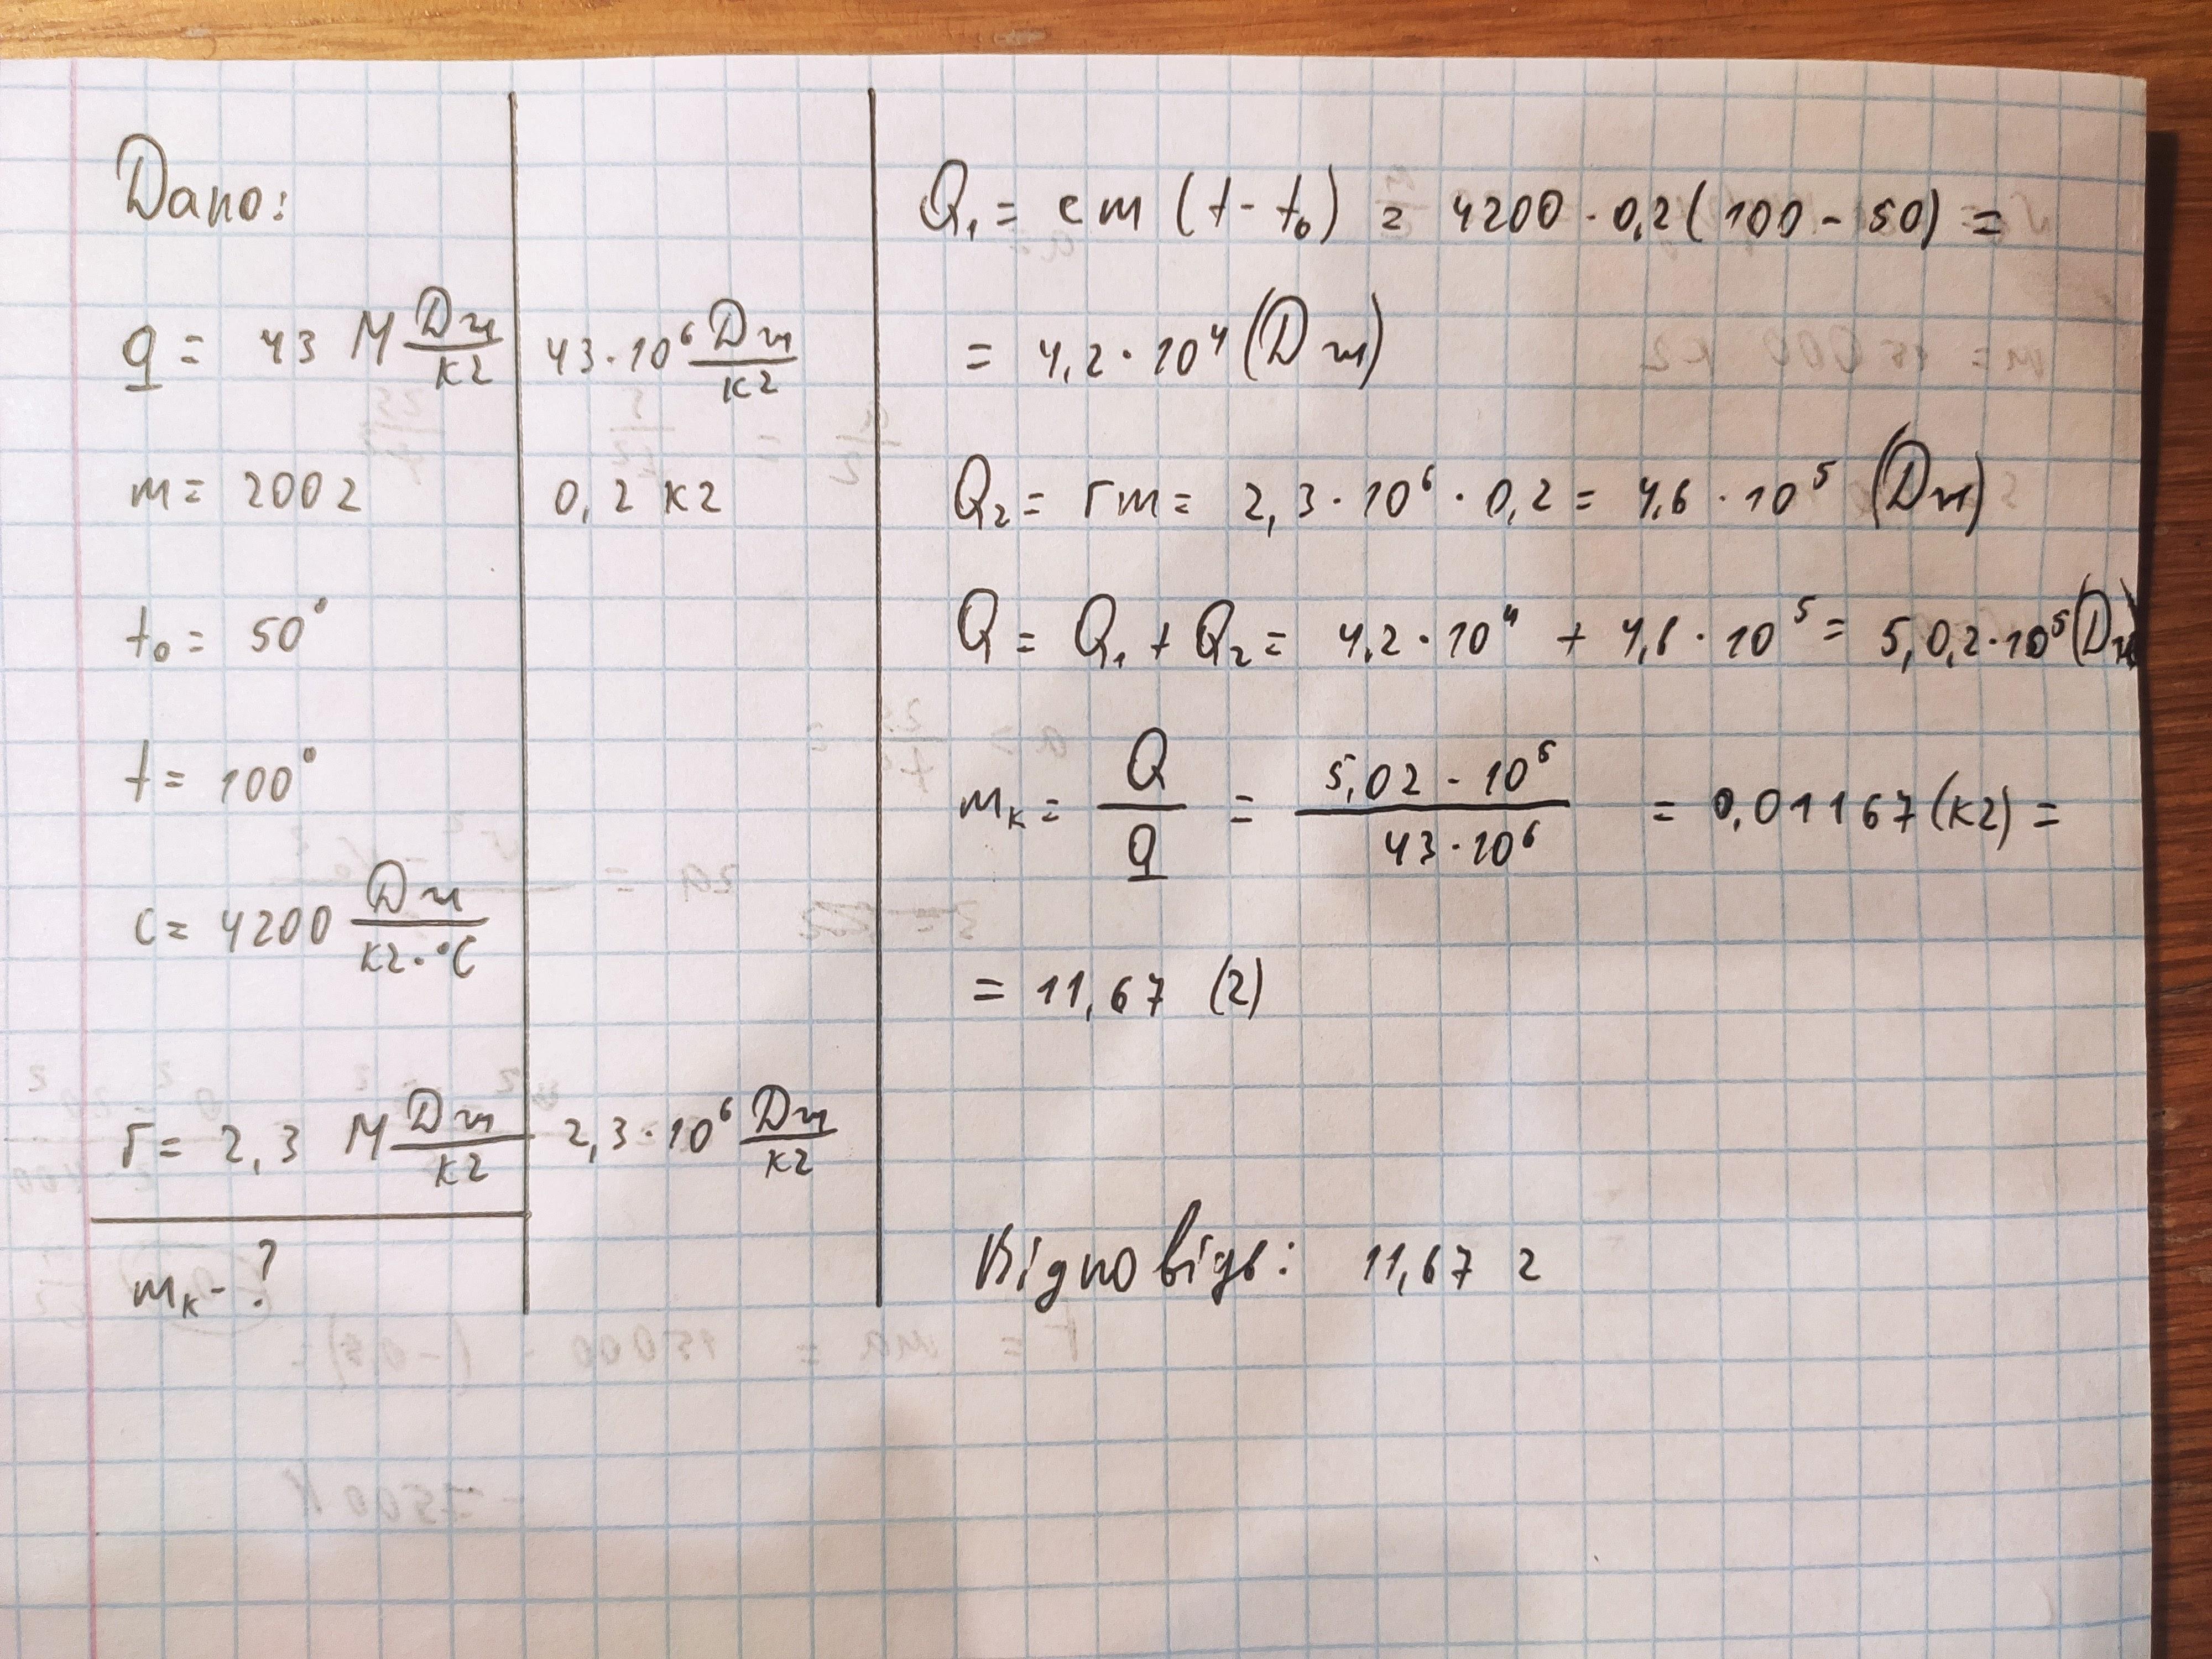 Дано:
q = 43 М Дж/кг 43·10⁶ Дж/кг
m = 200 г 0,2 кг
t₀ = 50°
t = 100°
c = 4200 Дж/кг·°C
r = 2,3 М Дж/кг 2,3·10⁶ Дж/кг
mк - ?
Q₁ = cm (t - t₀) = 4200 · 0,2 (100 - 50) =
= 4,2 · 10⁴ (Дж)
Q₂ = rm = 2,3 · 10⁶ · 0,2 = 4,6 · 10⁵ (Дж)
Q = Q₁ + Q₂ = 4,2 · 10⁴ + 4,6 · 10⁵ = 5,0,2·10⁵ (Дж)
mк = Q/q = 5,02 · 10⁵/43·10⁶ = 0,01167 (кг) =
= 11,67 (г)
Відповідь: 11,67 г